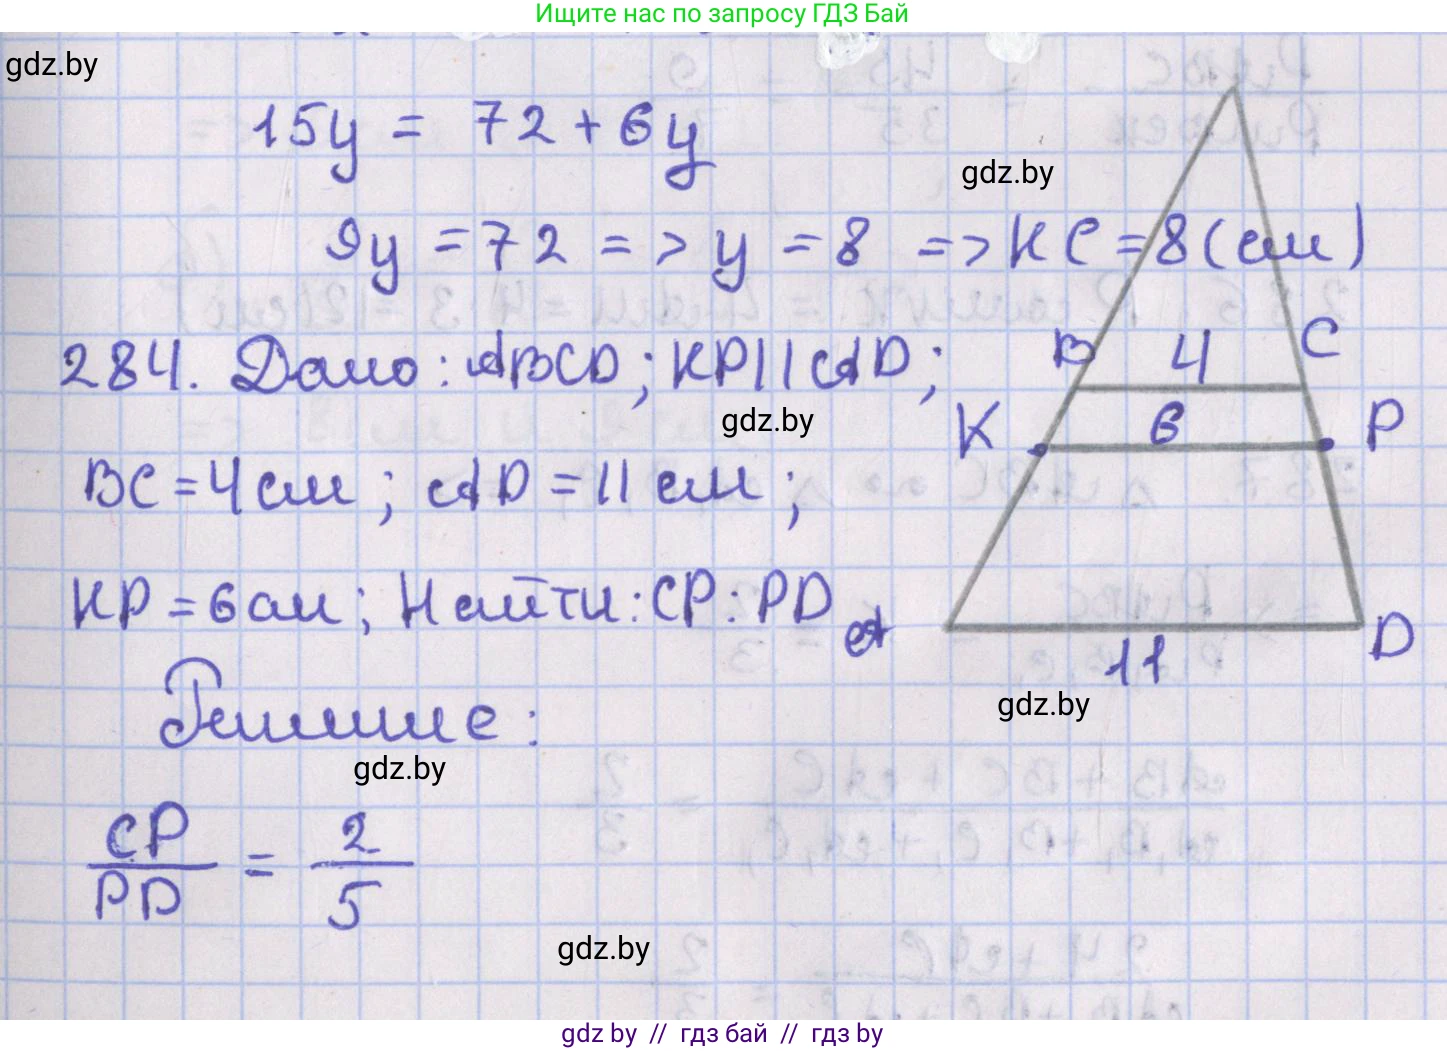 Ищите нас по запросу ГДЗ Бай
gdz.by
15y = 72 + 6y
gdz.by
9y = 72 => y = 8 => KC = 8 (см)
284. Дано: ABCD; KP || AD;
B 4 C
gdz.by
K 6 P
BC = 4 см; AD = 11 см;
KP = 6 см; Найти: CP : PD
A 11 D
gdz.by
Решение:
gdz.by
CP/PD = 2/5
gdz.by
gdz by // гдз бай // гдз by